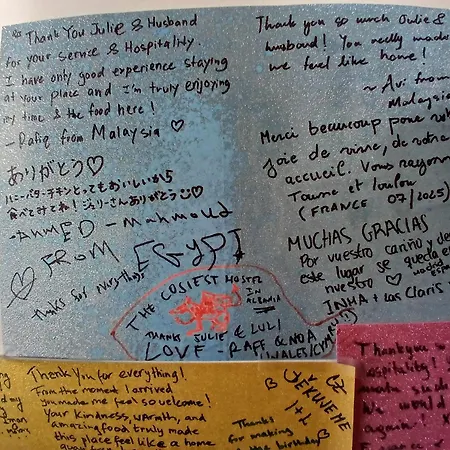 Thank You Julie & Husband
for your service & Hospitality.
I have only good experience staying
at your place and I'm truly enjoying
my time & the food here!
- Rafiq from Malaysia ♡
Thank you so much Julie &
husband! You really made
me feel like home!
~ Avi from
Malaysia
Merci beaucoup pour
joie de vivre, de votre
accueil. Vous rayonn
Toune et loulou
(FRANCE 07/2025)
ありがとう♡
ハニーバターチキンとってもおいしいから
食べてみてね!ジュリーさんありがとう
- AHMED - Mahmoud
FROM EGYPT
♡ thanks for everything
MUCHAS GRACIAS
Por vuestro cariño y de
este lugar se queda en
nuestro ♡
INHA + Las Claris
THE COSIEST HOSTEL
IN ALBANIA
THANKS JULIE & LULI
LOVE - RAFF & NOA
WALES/CYMRU
Thank You for everything!
From the moment I arrived
you made me feel so welcome!
Your kindness, warmth, and
amazing food truly made
this place feel like a home
DĚKUJEME
CZ
Thanks
for making
the birthday
Thank you
Hospitality!
made
We would
again!